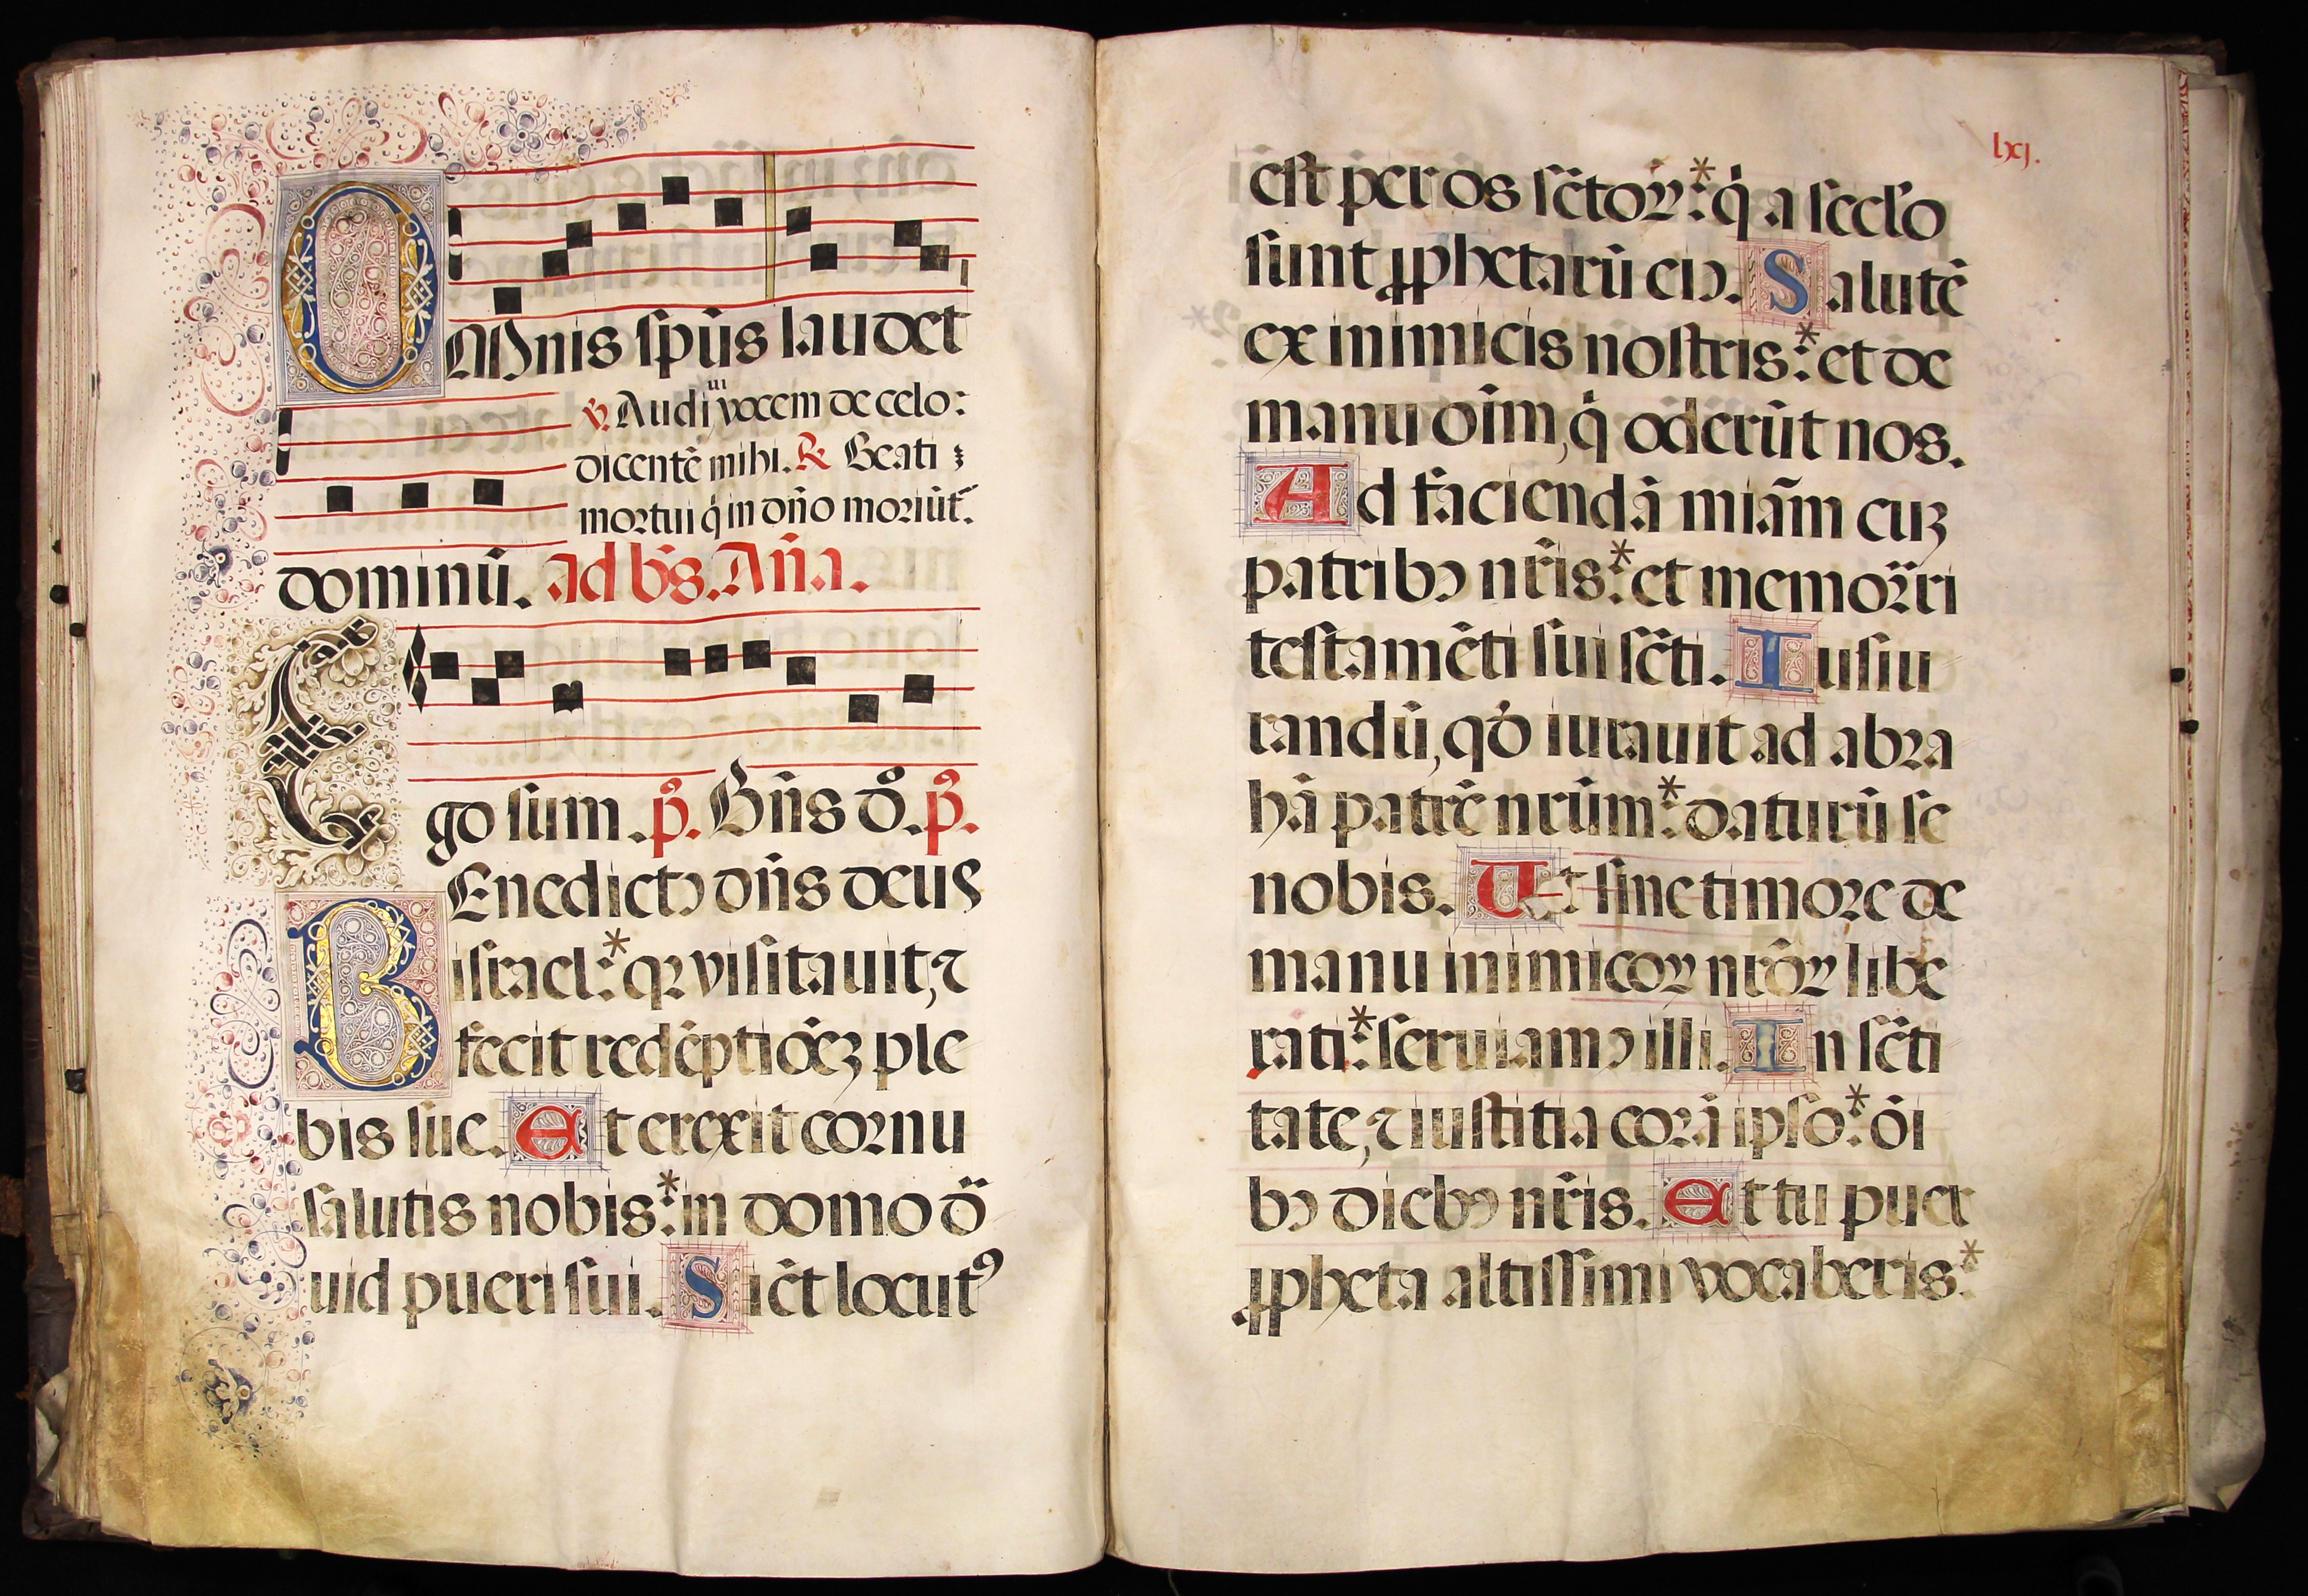 OMnis sp̄ūs laudet
℣. Audiui vocem de celo:
dicentē mihi. ℟ Beati
mortui q̇ in dn̄o moriūt᷑.
dominū. Ad b̄s. An̄a.
Ego sum. p̄s. Bn̄s d̊. p̄s.
BEnedictꝰ dn̄s deus
israel:* qꝛ visitauit, ⁊
fecit redēptiōeꝫ ple
bis sue. Et erexit cornu
salutis nobis:* in domo d̄
uid pueri sui. Sic̄t locutꝰ
lxj.
est per os sc̄toꝝ:* q̇ a secl̓o
sunt ꝓphetarū eiꝰ. Salutē
ex inimicis nostris:* et de
manu oīm, q̇ oderūt nos.
Ad faciendā miām cuꝫ
patribꝰ nr̄is:* et memorari
testamēti sui sc̄ti. Iusiu
randū, qd̓ iurauit ad abra
hā patrē nrūm:* daturū se
nobis. Ut sine timore de
manu inimicoꝝ nrōꝝ libe
rati:* seruiamꝰ illi. In sc̄ti
tate, ⁊ iustitia corā ipso:* oī
bꝰ diebꝰ nr̄is. Et tu puer
ꝓpheta altissimi vocaberis:*